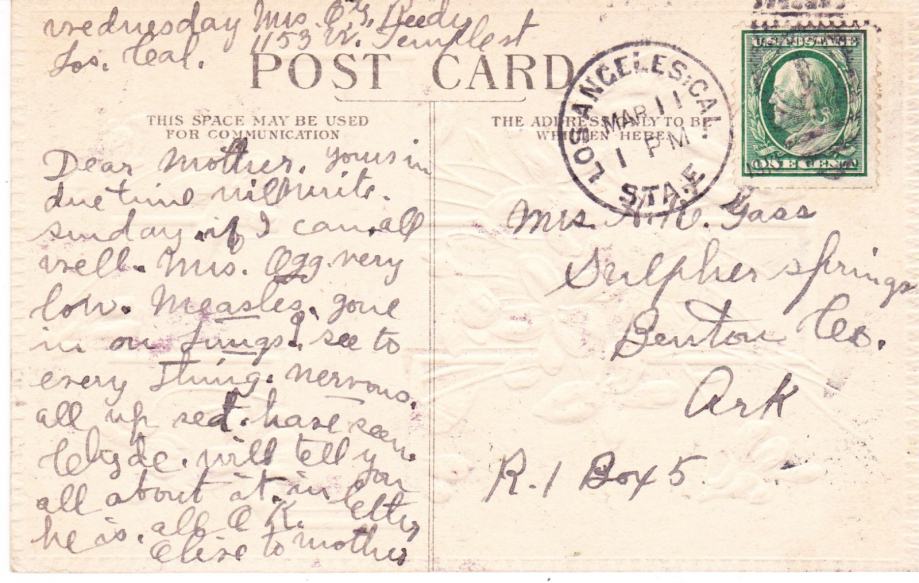 wednesday Mrs. O. G. Reedy
1153 W. Templest
Los. Cal.
POST CARD
THIS SPACE MAY BE USED
FOR COMMUNICATION
THE ADDRESS ONLY TO BE
WRITTEN HERE
LOS ANGELES, CAL.
MAR 11
1 PM
STA. E
U.S. POSTAGE
ONE CENT
Dear Mother. yours in
due time will write.
sunday if I can. all
well. Mrs. Ogg. very
low. Measles. gone
in on Lungs. I see to
every thing. nervous.
all up set. have seen
Clyde. will tell you
all about it. in
letter
he is. all O K.
to mother
Mrs. Gass
Sulpher Springs
Benton Co.
Ark
R.1 Box 5